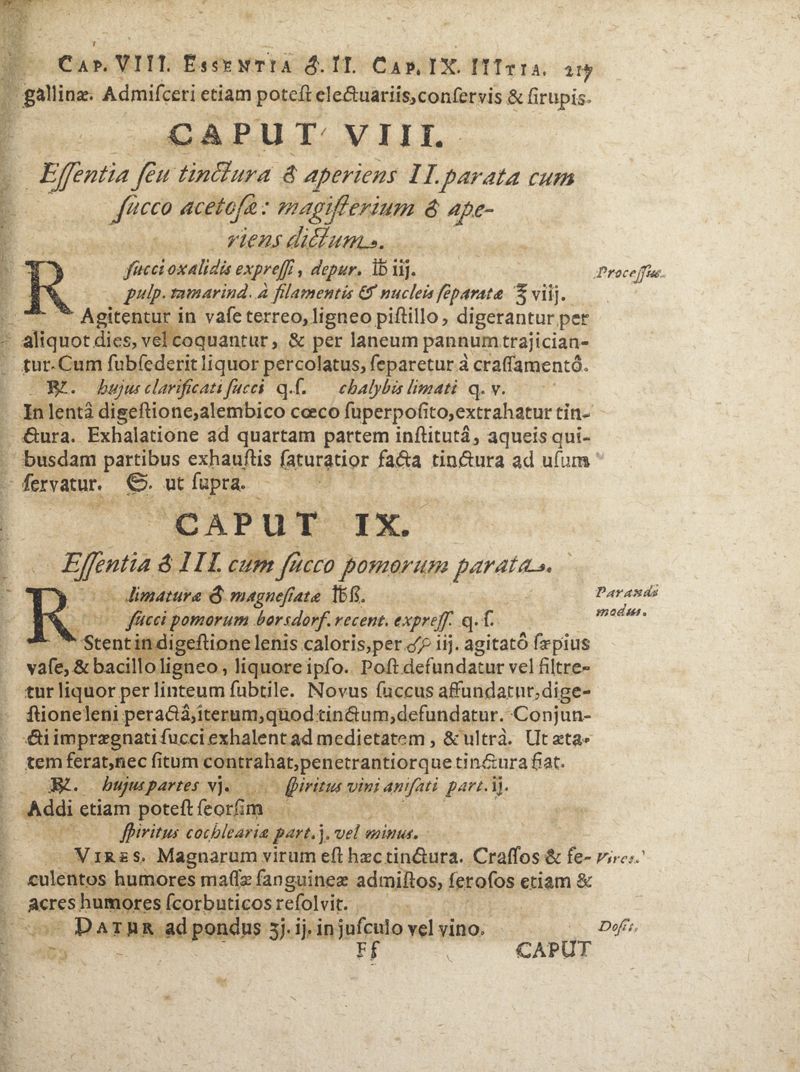 CAP. VIII. ESSENTIA ♂. II. CAP. IX. IIITIA. 217
gallinæ. Admiſceri etiam poteſt electuariis, conſervis & ſirupis.
CAPUT VIII.
Eſſentia ſeu tinctura ♂ aperiens II. parata cum
ſucco acetoſæ: magiſterium ♂ ape-
riens dictum.
R ſucci oxalidis expreſſi, depur. ℔ iij.
Proceſſus.
pulp. tamarind. à filamentis & nucleis ſeparatæ ℥ viij.
Agitentur in vaſe terreo, ligneo piſtillo, digerantur per
aliquot dies, vel coquantur, & per laneum pannum trajician-
tur. Cum ſubſederit liquor percolatus, ſeparetur à craſſamentô.
℞. hujus clarificati ſucci q.ſ. chalybis limati q. v.
In lentâ digeſtione, alembico cœco ſuperpoſito, extrahatur tin-
ctura. Exhalatione ad quartam partem inſtitutâ, aqueis qui-
busdam partibus exhauſtis ſaturatior facta tinctura ad uſum
ſervatur. ut ſupra.
CAPUT IX.
Eſſentia ♂ III. cum ſucco pomorum parata.
R limaturæ ♂ magneſiatæ ℔ß.
Parandi
modus.
ſucci pomorum borsdorf. recent. expreſſ. q. ſ.
Stent in digeſtione lenis caloris, per iij. agitatô ſæpius
vaſe, & bacillo ligneo, liquore ipſo. Poſt defundatur vel filtre-
tur liquor per linteum ſubtile. Novus ſuccus affundatur, dige-
ſtione leni peractâ, iterum, quod tinctum, defundatur. Conjun-
cti imprægnati ſucci exhalent ad medietatem, & ultrâ. Ut æta-
tem ferat, nec ſitum contrahat, penetrantiorque tinctura fiat.
℞. hujus partes vj. ſpiritus vini aniſati part. ij.
Addi etiam poteſt ſeorſim
ſpiritus cochleariæ part. j. vel minus.
VIRES. Magnarum virum eſt hæc tinctura. Craſſos & fe-
Vires.
culentos humores maſſæ ſanguineæ admiſtos, ſeroſos etiam &
acres humores ſcorbuticos reſolvit.
DATUR ad pondus ʒj. ij. in juſculo vel vino.
Doſis.
Ff CAPUT